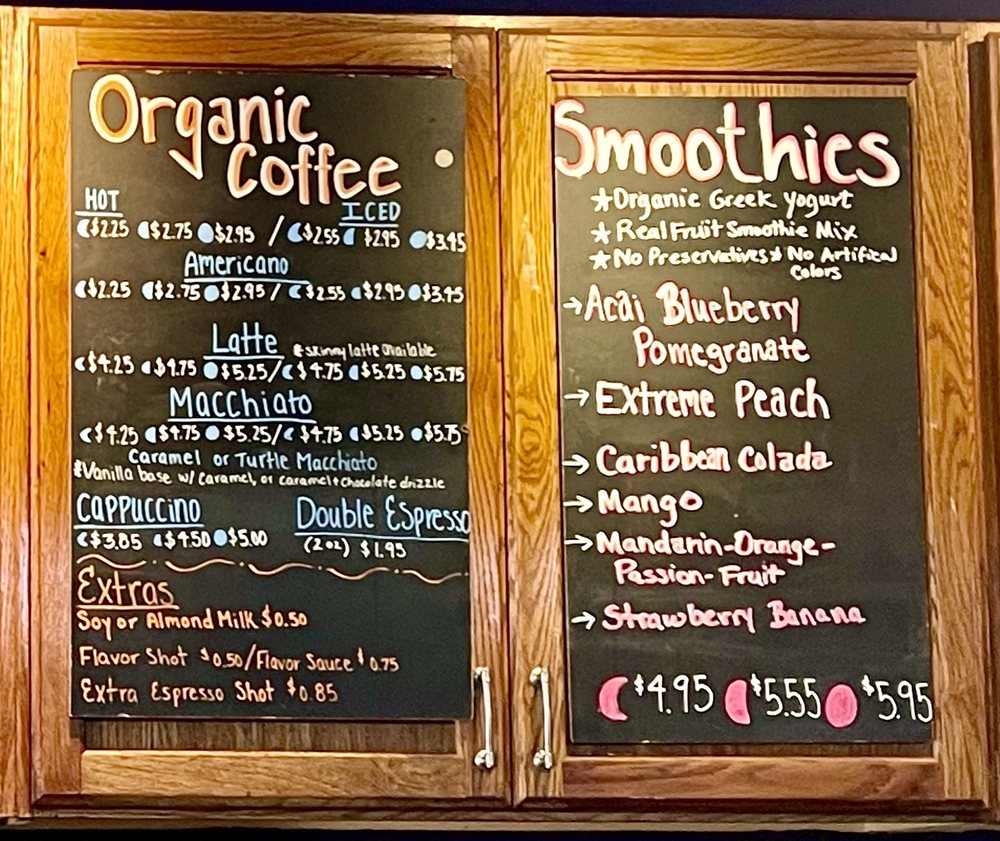 Organic
Coffee
HOT
ICED
$2.25 $2.75 $2.95 / $2.55 $2.95 $3.45
Americano
$2.25 $2.75 $2.95 / $2.55 $2.95 $3.45
Latte *skinny latte available
$4.25 $4.75 $5.25 / $4.75 $5.25 $5.75
Macchiato
$4.25 $4.75 $5.25 / $4.75 $5.25 $5.75
Caramel or Turtle Macchiato
*Vanilla base w/ caramel, or caramel + chocolate drizzle
Cappuccino
$3.85 $4.50 $5.00
Double Espresso
(2oz) $1.95
Extras
Soy or Almond Milk $0.50
Flavor Shot $0.50/Flavor Sauce $0.75
Extra Espresso Shot $0.85
Smoothies
*Organic Greek yogurt
* Real Fruit Smoothie Mix
*No Preservatives * No Artifical
Colors
→Acai Blueberry
Pomegranate
→Extreme Peach
→Caribbean Colada
→Mango
→Mandarin-Orange-
Passion-Fruit
→Strawberry Banana
$4.95 $5.55 $5.95